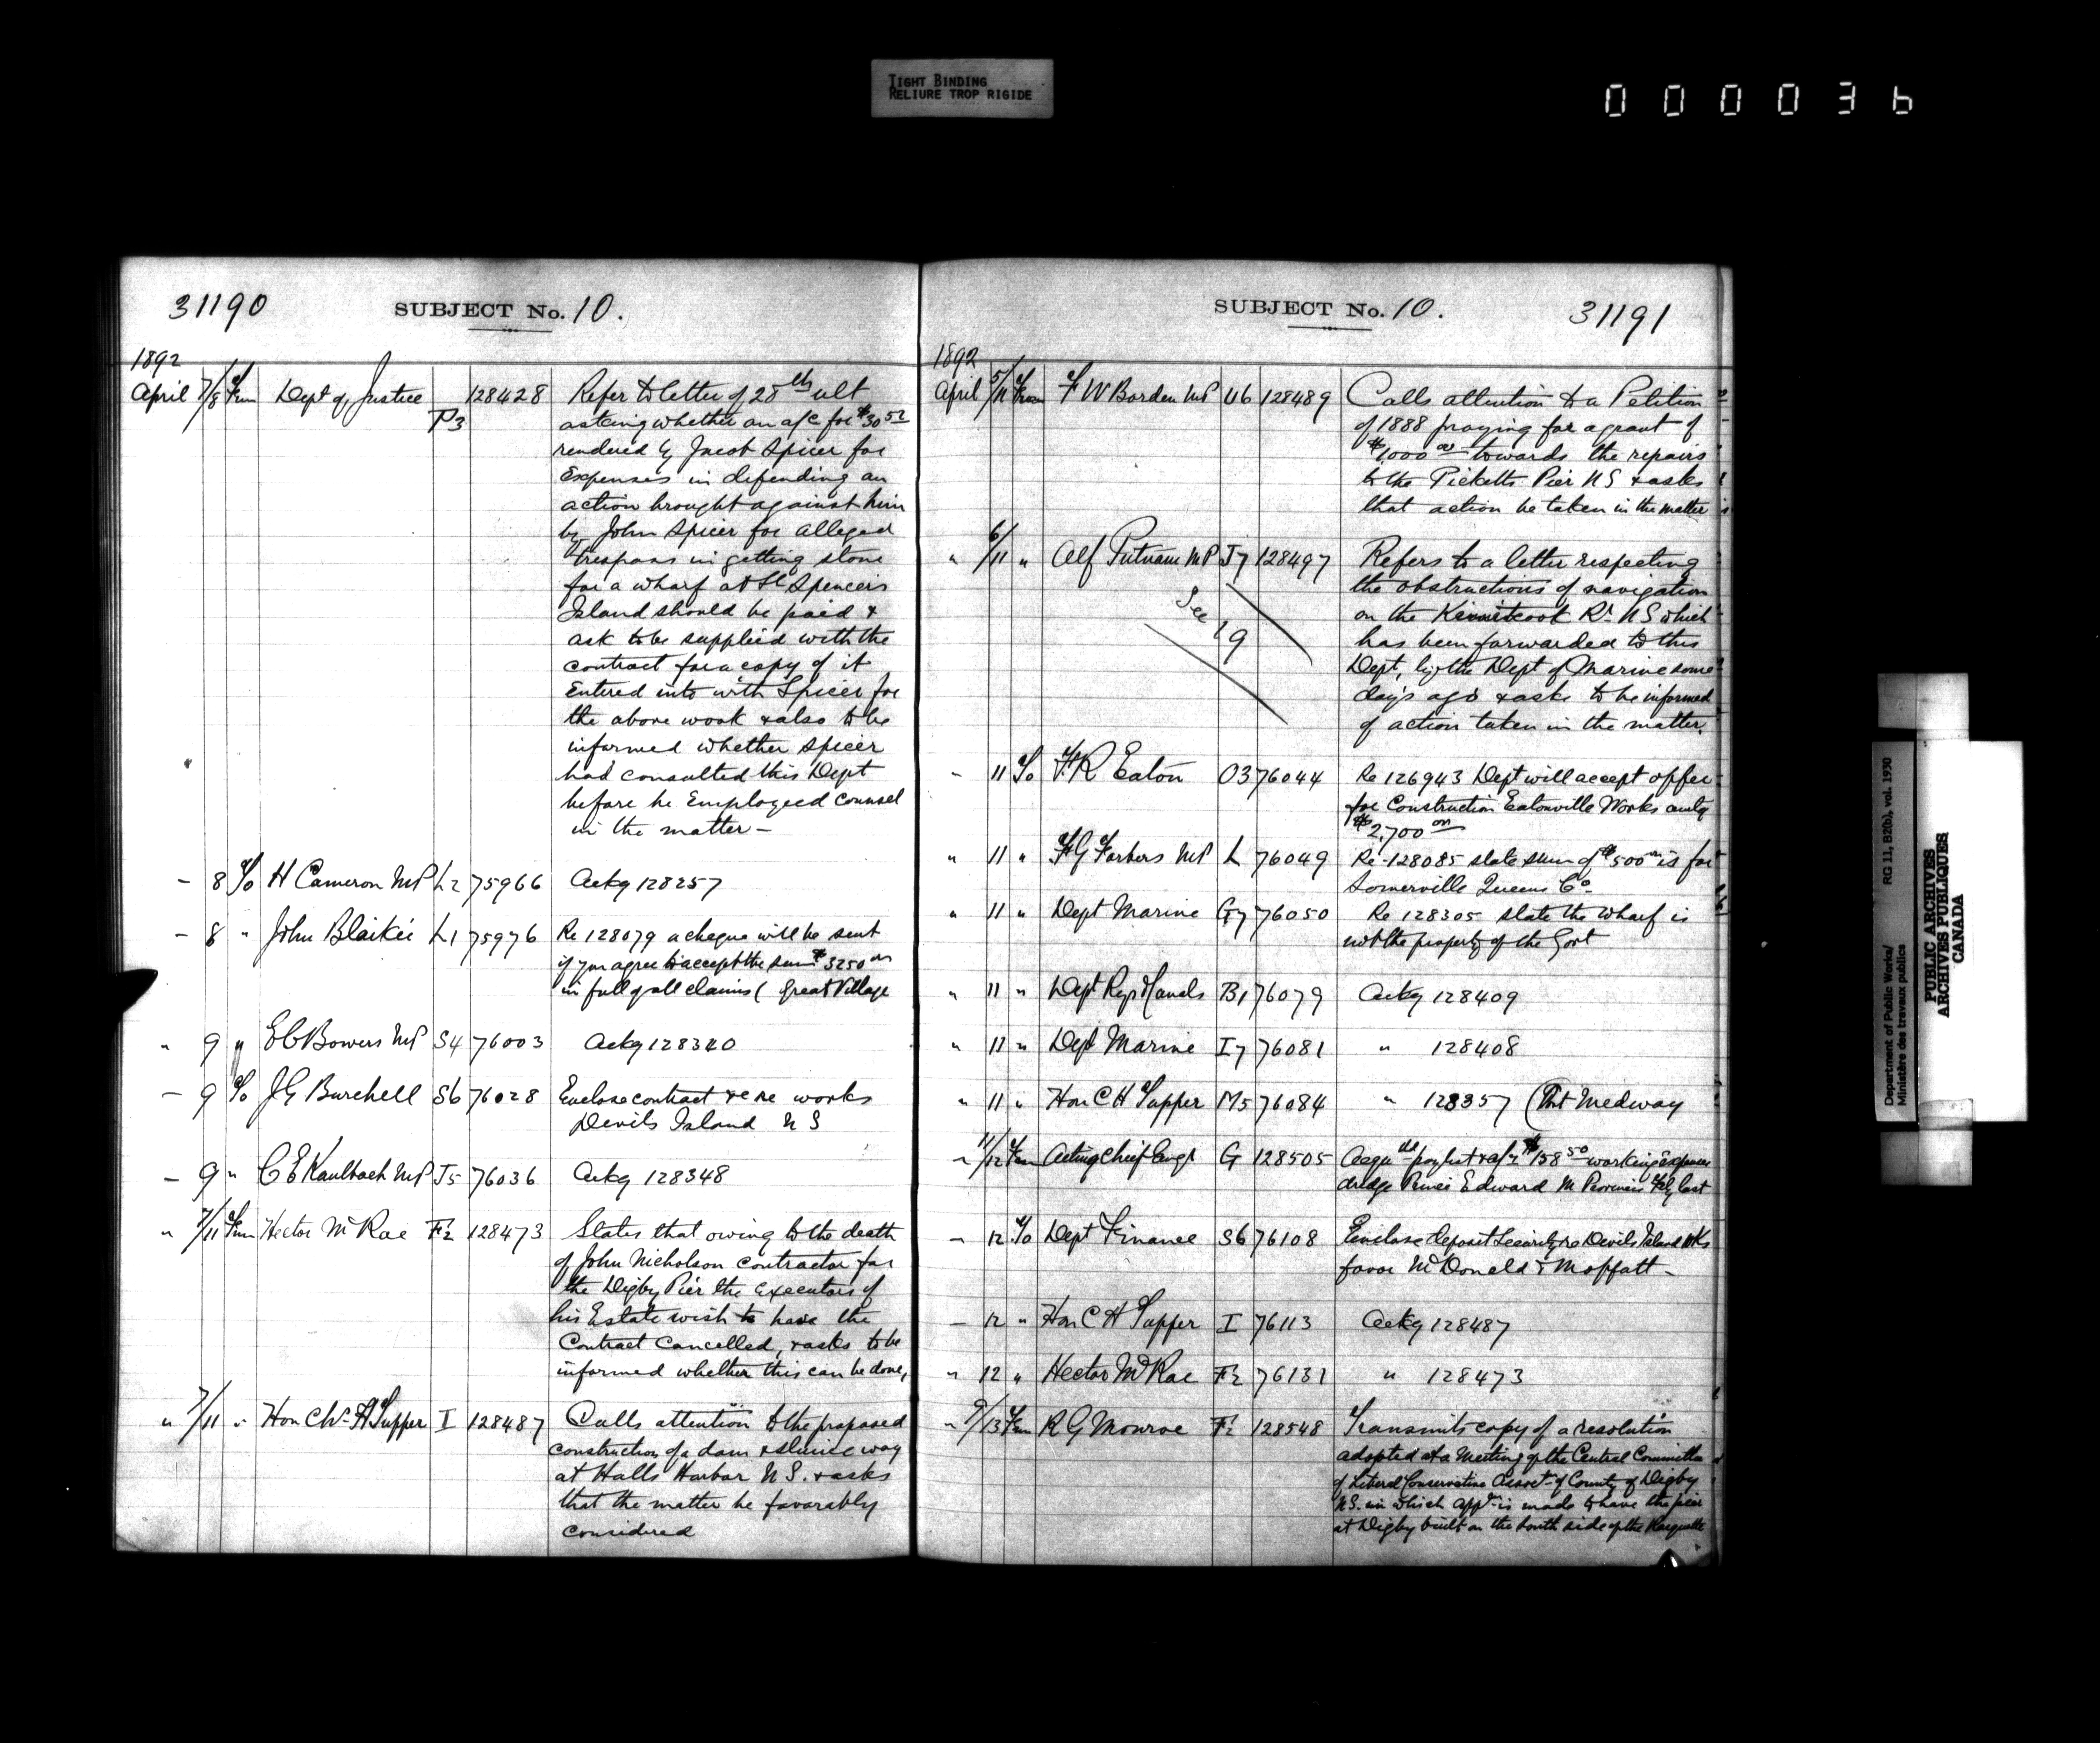 TIGHT BINDING
RELIURE TROP RIGIDE
000036
31190 SUBJECT No. 10.
1892
April 7/8 From Dept of Justice P3 128428 Refer to letter of 28th ult
asking whether an a/c for $30 52
rendered by Jacob Spicer for
Expenses in defending an
action brought against him
by John Spicer for alleged
Trespass in getting stone
for a wharf at St Spencers
Island should be paid &
ask to be supplied with the
contract for a copy of it
Entered into with Spicer for
the above work & also to be
informed whether Spicer
had consulted this Dept
before he Employeed counsel
in the matter —
— 8 To H Cameron MP L2 75966 Ackg 128257
— 8 " John Blaikie L1 75976 Re 128079 a cheque will be sent
if you agree to accept the sum $3250 00
in full of all claims ( Great Village
" 9 " E C Bowers MP S4 76003 Ackg 128340
— 9 To J G Burchell S6 76028 Enclose contract re works
Devils Island N S
— 9 " C E Kaulbach MP J5 76036 Ackg 128348
" 7/11 From Hector McRae F2 128473 States that owing to the death
of John Nicholson Contractor for
the Digby Pier the Executors of
his Estate wish to have the
Contract Cancelled, & asks to be
informed whether this can be done,
" 7/11 " Hon Chs H Tupper I 128487 Calls attention to the proposed
construction of a dam & sluice way
at Halls Harbor N S. & asks
that the matter be favorably
considered
SUBJECT No. 10. 31191
1892
April 5/11 From F W Borden MP U6 128489 Calls attention to a Petition
of 1888 praying for a grant of
$1000 00 towards the repairs
to the Picketts Pier N S & asks
that action be taken in the matter
" 6/11 " Alf Putnam MP J7 128497 Refers to a letter respecting
the obstructions of navigation
See 19
on the Kennetcook Rr N S which
has been forwarded to this
Dept, by the Dept of Marine some
days ago & asks to be informed
of action taken in the matter.
" 11 To F R Eaton O3 76044 Re 126943 Dept will accept offer
for Construction Eatonville Works only
$2,700 00
" 11 " F G Forbers MP L 76049 Re 128085 state sum of $500 00 is for
Somerville Queens Co.
" 11 " Dept Marine G7 76050 Re 128305 state the wharf is
not the property of the Govt
" 11 " Dept Rys & Canals B1 76079 Ackg 128409
" 11 " Dept Marine I7 76081 " 128408
" 11 " Hon C H Tupper M5 76084 " 128357 (Port Medway
" 11/12 From Acting Chief Engr G 128505 paylist & a/c $158 50 working Expenses
dredge Prince Edward M last
— 12 To Dept Finance S6 76108 Enclose deposit Security re Devils Island Wks
favor McDonald & Moffatt —
— 12 " Hon C H Tupper I 76113 Ackg 128487
" 12 " Hector McRae F2 76131 " 128473
" 9/13 From R G Monroe F2 128548 Transmits copy of a resolution
adopted at a Meeting of the Central Committee
of Liberal Conservative Assoctn of County of Digby
N S. in which appn is made to have the pier
at Digby built on the South side of the Racquette
Department of Public Works/ RG 11, B2(b), vol. 1930
Ministère des travaux publics
PUBLIC ARCHIVES
ARCHIVES PUBLIQUES
CANADA